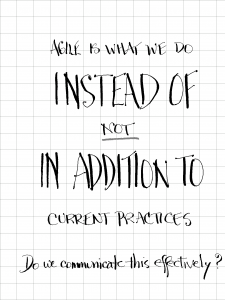 AGILE IS WHAT WE DO
INSTEAD OF
NOT
IN ADDITION TO
CURRENT PRACTICES
Do we communicate this effectively?